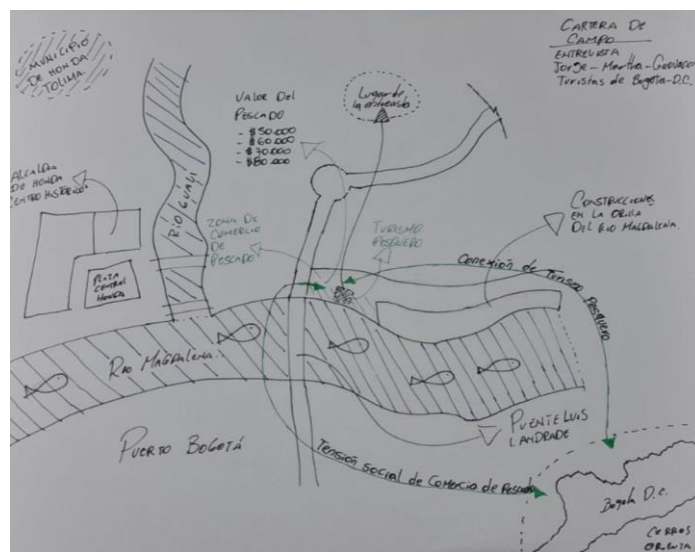 MUNICIPIO
DE HONDA
TOLIMA
CARTERA DE
CAMPO
ENTREVISTA
Jorge - Martha - Geovanny
Turistas de Bogota - D.C.
VALOR DEL
PESCADO
- $50.000
- $60.000
- $70.000
- $80.000
Lugar de
la entrevista
ALCALDIA
DE HONDA
CENTRO HISTORICO
RIO GUALI
PLAZA
CENTRAL
HONDA
ZONA DE
COMERCIO
DE
PESCADO
TURISMO
PESQUERO
CONSTRUCCIONES
EN LA ORILLA
DEL RIO MAGDALENA.
Conexión de Turismo Pesquero
RIO MAGDALENA
PUENTE LUIS
LANDRADE
PUERTO BOGOTÁ
Tensión social de Comercio de Pescado
Bogota D.C.
CERROS
ORIENTA